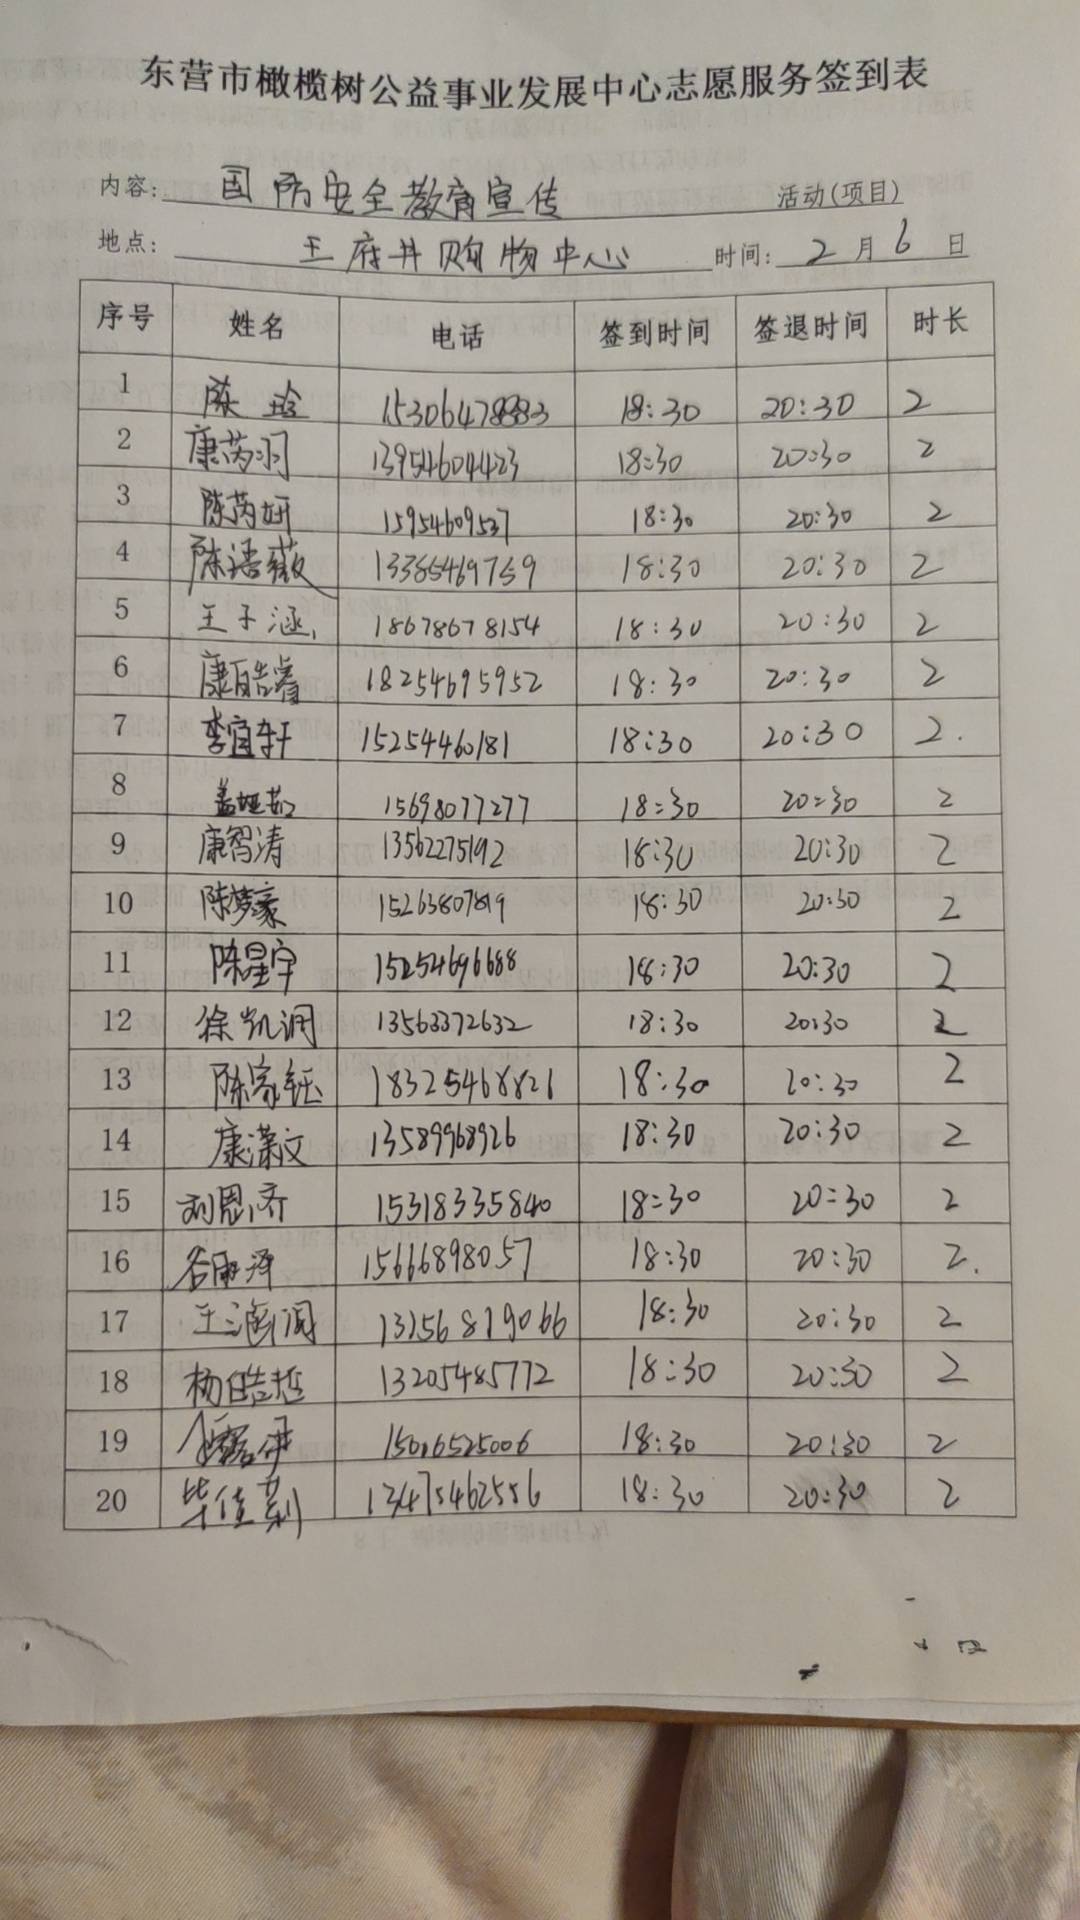 东营市橄榄树公益事业发展中心志愿服务签到表
内容: 国防安全教育宣传 活动(项目)
地点: 王府井购物中心 时间: 2月6日
序号 姓名 电话 签到时间 签退时间 时长
1 陈玲 18:30 20:30 2
2 康芮羽 13954604423 18:30 20:30 2
3 陈芮妍 15954609537 18:30 20:30 2
4 陈语薇 13385469759 18:30 20:30 2
5 王子涵 18678678154 18:30 20:30 2
6 康皓睿 18254695952 18:30 20:30 2
7 李宜轩 15254460181 18:30 20:30 2.
8 15698077277 18:30 20:30 2
9 康智涛 13562275192 18:30 20:30 2
10 陈梦豪 15263807819 18:30 20:30 2
11 陈星宇 15254696688 18:30 20:30 2
12 徐凯润 13563372632 18:30 20:30 2
13 陈家钰 18325468826 18:30 20:30 2
14 康潇文 13589968926 18:30 20:30 2
15 刘恩齐 15318335840 18:30 20:30 2
16 15666898057 18:30 20:30 2.
17 王涵润 13256819066 18:30 20:30 2
18 杨皓哲 13205485772 18:30 20:30 2
19 18:30 20:30 2
20 毕佳莉 13475462556 18:30 20:30 2